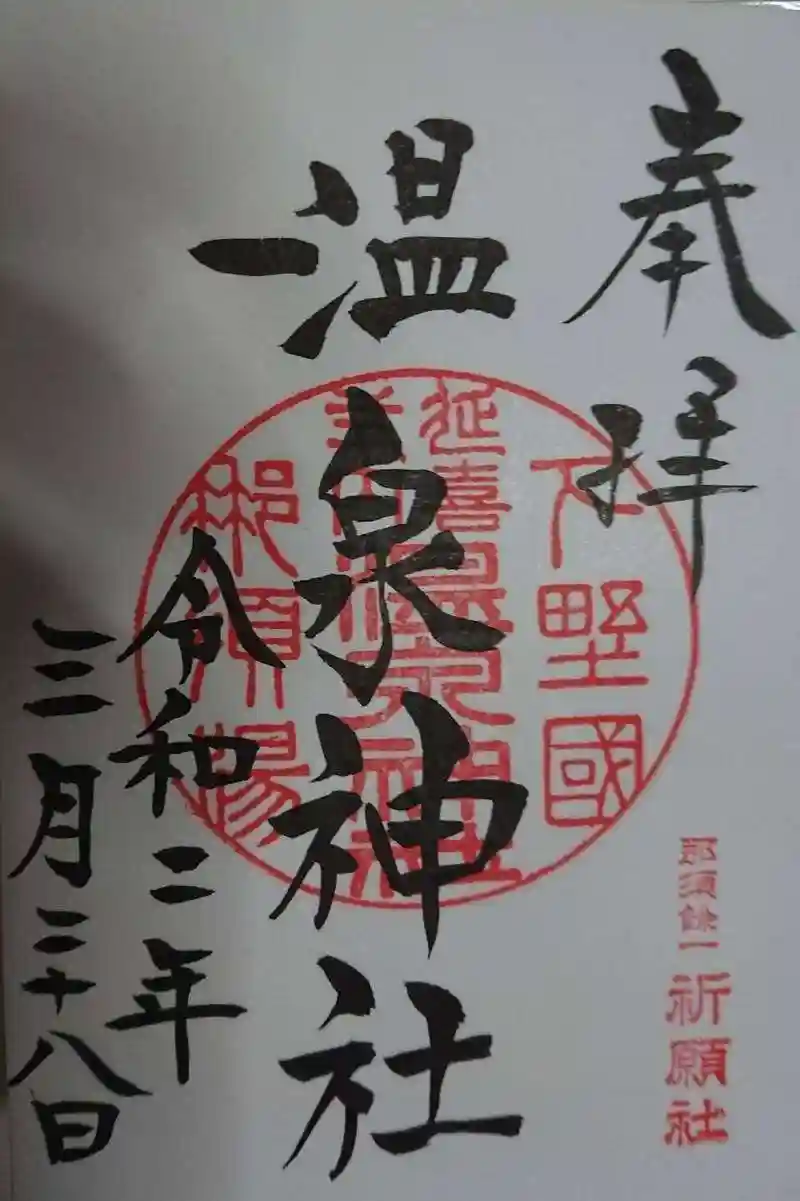 奉拝
那須餘一祈願社
下野國
延喜
温泉神社
温泉神社
那須湯
令和二年
三月二十八日